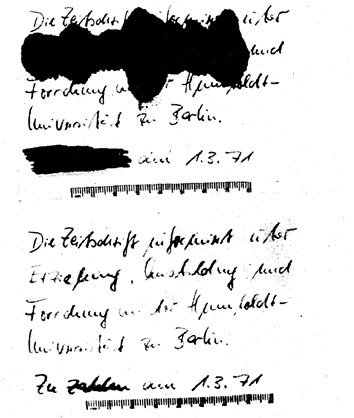 Die Zeitschrift informiert über
und
Forschung an der Humboldt-
Universität zu Berlin.
am 1.3.71
Die Zeitschrift informiert über
Erziehung, Ausbildung und
Forschung an der Humboldt-
Universität zu Berlin.
Zu zahlen am 1.3.71